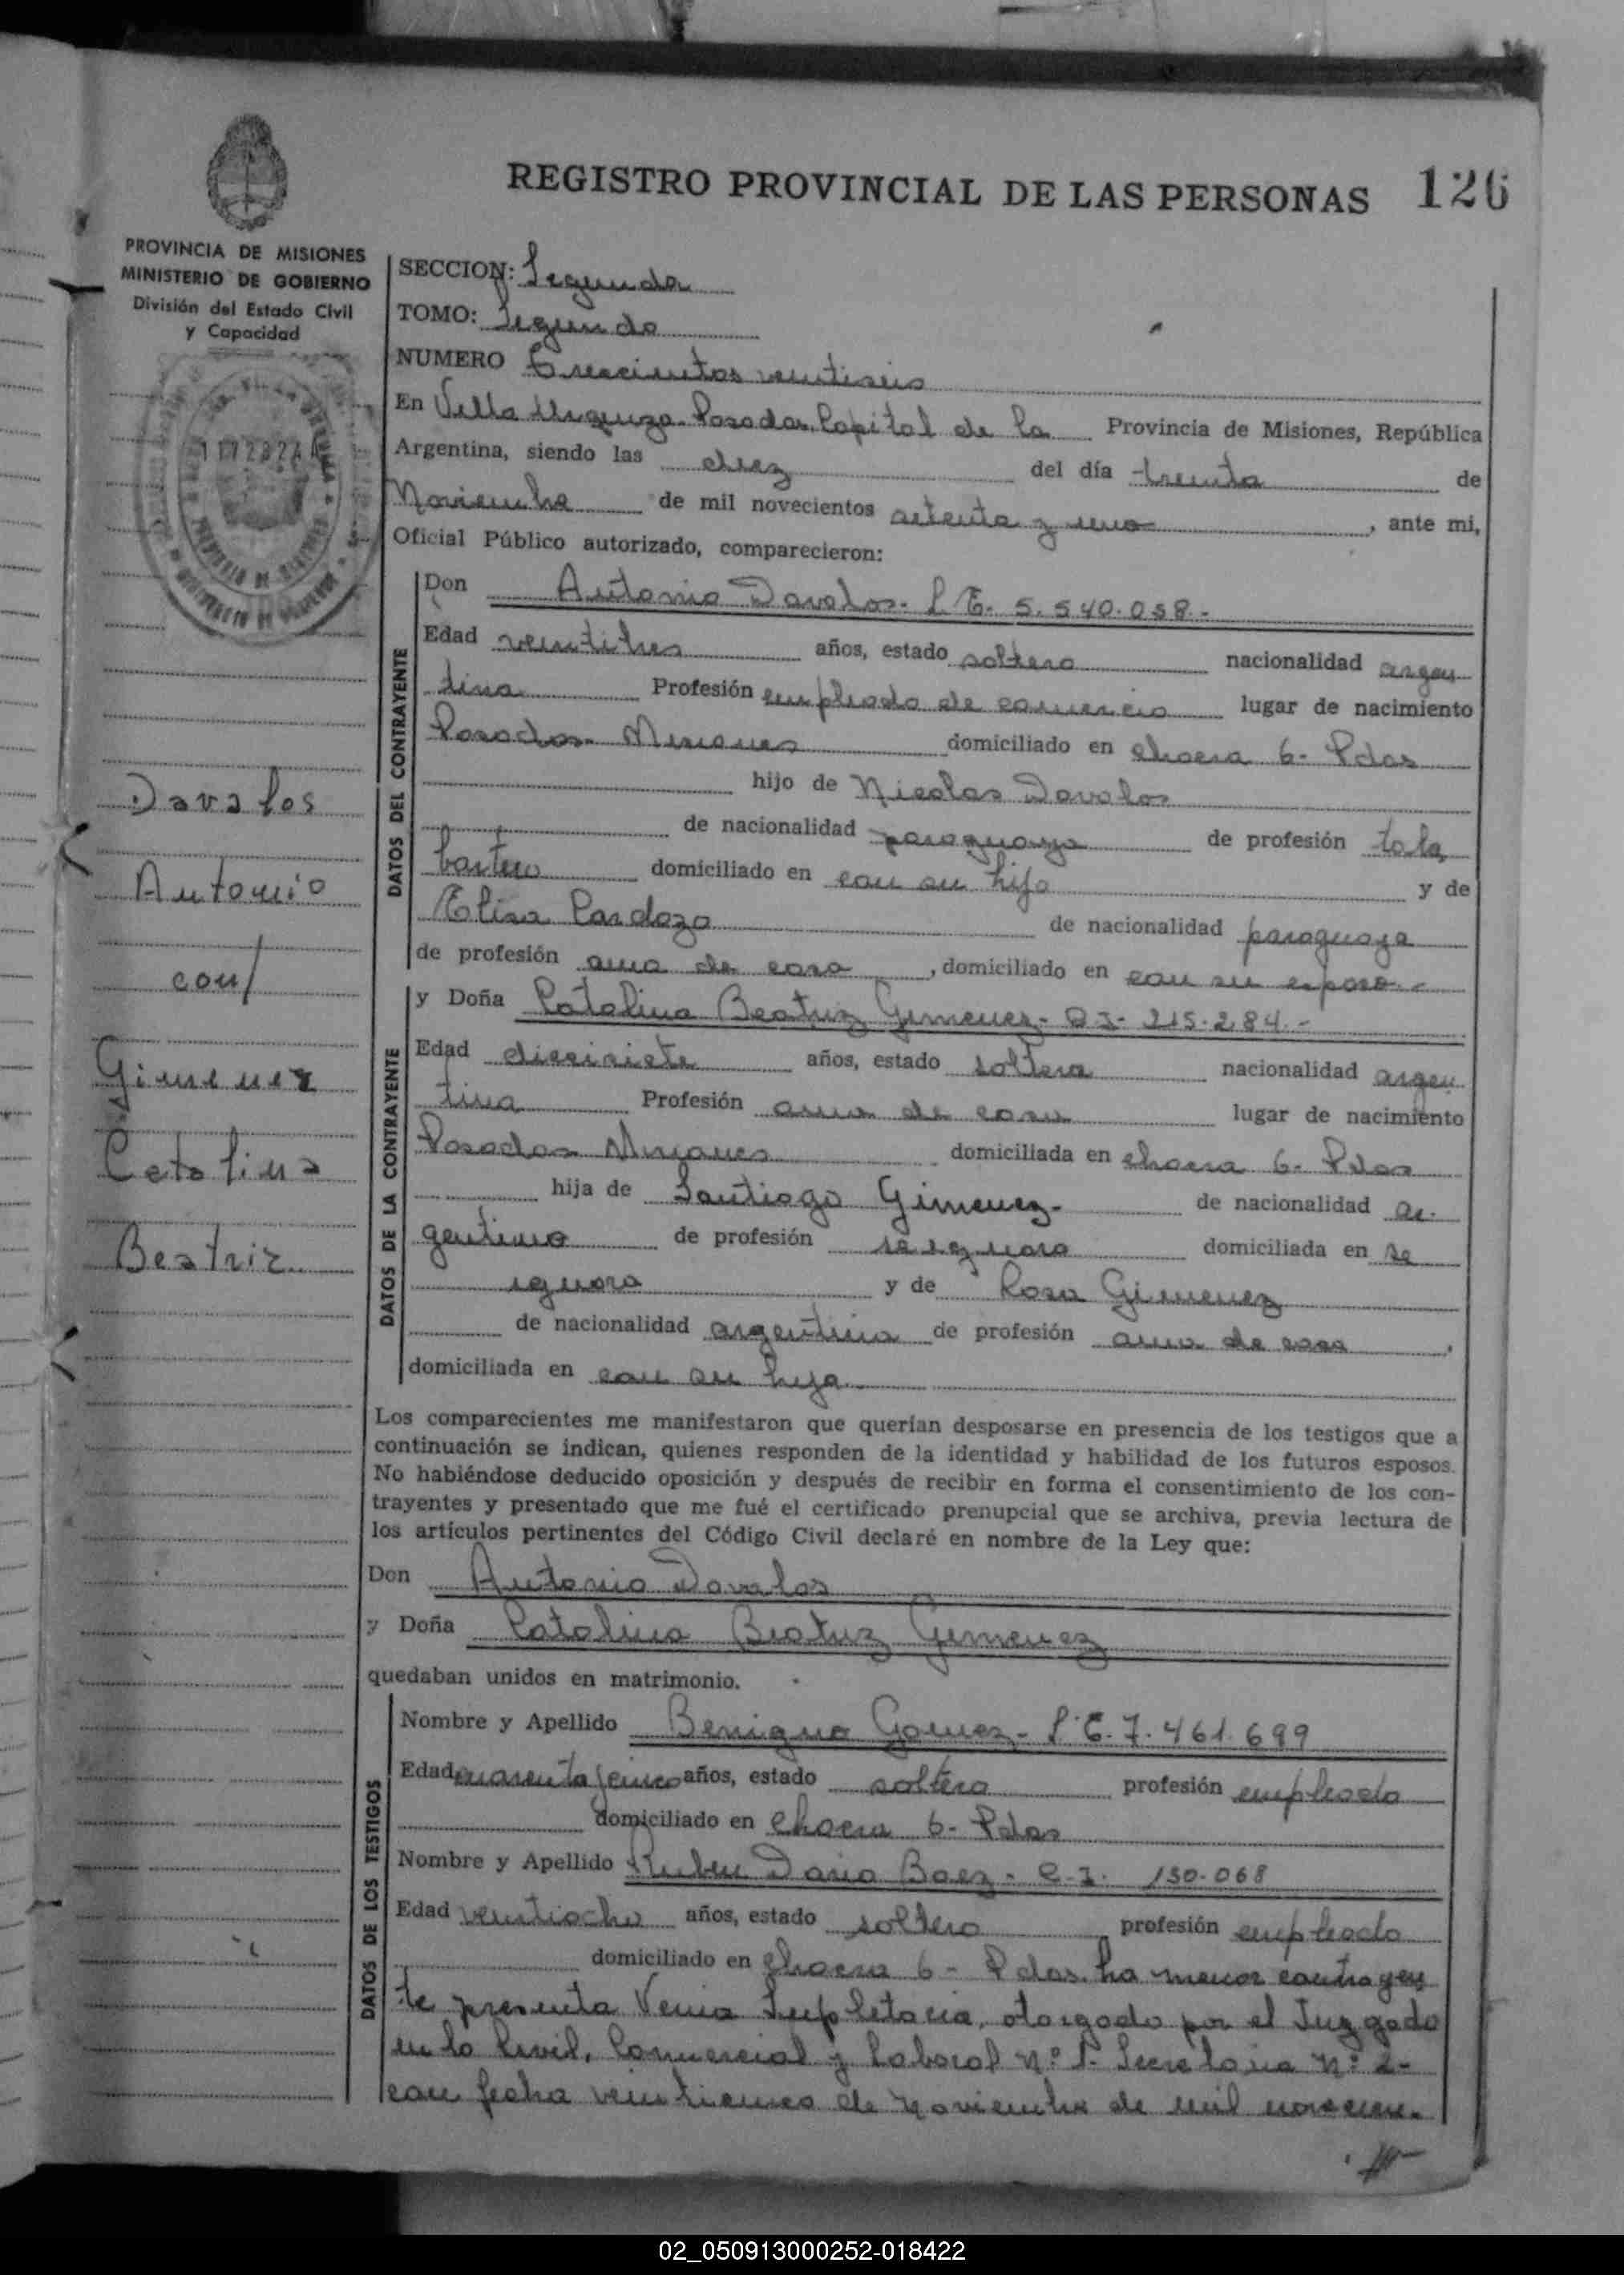 REGISTRO PROVINCIAL DE LAS PERSONAS 126
PROVINCIA DE MISIONES
MINISTERIO DE GOBIERNO
División del Estado Civil
y Capacidad
Davalos
Antonio
con/
Gimenez
Catalina
Beatriz
SECCION: Segunda
TOMO: Segundo
NUMERO Trescientos veintiseis
En Villa Urquiza Posadas Capital de la Provincia de Misiones, República
Argentina, siendo las diez del día treinta de
Noviembre de mil novecientos setenta y uno , ante mi,
Oficial Público autorizado, comparecieron:
DATOS DEL CONTRAYENTE
Don Antonio Davalos- L E. 5.540.058.-
Edad veintitres años, estado soltero nacionalidad argen
tina Profesión empleado de comercio lugar de nacimiento
Posadas- Misiones domiciliado en chacra 6- Pdas
hijo de Nicolas Davalos
de nacionalidad paraguaya de profesión tala
bartero domiciliado en con su hijo y de
Elisa Cardozo de nacionalidad paraguaya
de profesión ama de casa , domiciliado en con su esposo -
DATOS DE LA CONTRAYENTE
y Doña Catalina Beatriz Gimenez- C I- 215.284.-
Edad diecisiete años, estado soltera nacionalidad argen
tina Profesión ama de casa lugar de nacimiento
Posadas Misiones domiciliada en chacra 6- Pdas
hija de Santiago Gimenez- de nacionalidad ar-
gentino de profesión se ignora domiciliada en se
ignora y de Rosa Gimenez
de nacionalidad argentina de profesión ama de casa ,
domiciliada en con su hija
Los comparecientes me manifestaron que querían desposarse en presencia de los testigos que a
continuación se indican, quienes responden de la identidad y habilidad de los futuros esposos.
No habiéndose deducido oposición y después de recibir en forma el consentimiento de los con-
trayentes y presentado que me fué el certificado prenupcial que se archiva, previa lectura de
los artículos pertinentes del Código Civil declaré en nombre de la Ley que:
Don Antonio Davalos
y Doña Catalina Beatriz Gimenez
quedaban unidos en matrimonio.
DATOS DE LOS TESTIGOS
Nombre y Apellido Benigno Gomez- L E. 7.461.699
Edad cuarenta y cinco años, estado soltero profesión empleado
domiciliado en chacra 6- Pdas
Nombre y Apellido Ruben Dario Baez- C.I. 150.068
Edad veintiocho años, estado soltero profesión empleado
domiciliado en chacra 6- Pdas. La menor contrayen
te presenta Venia Supletoria, otorgado por el Juzgado
en lo Civil, Comercial y Laboral Nº 1. Secretaria Nº 2-
con fecha veinticinco de Noviembre de mil novecien-
02_050913000252-018422